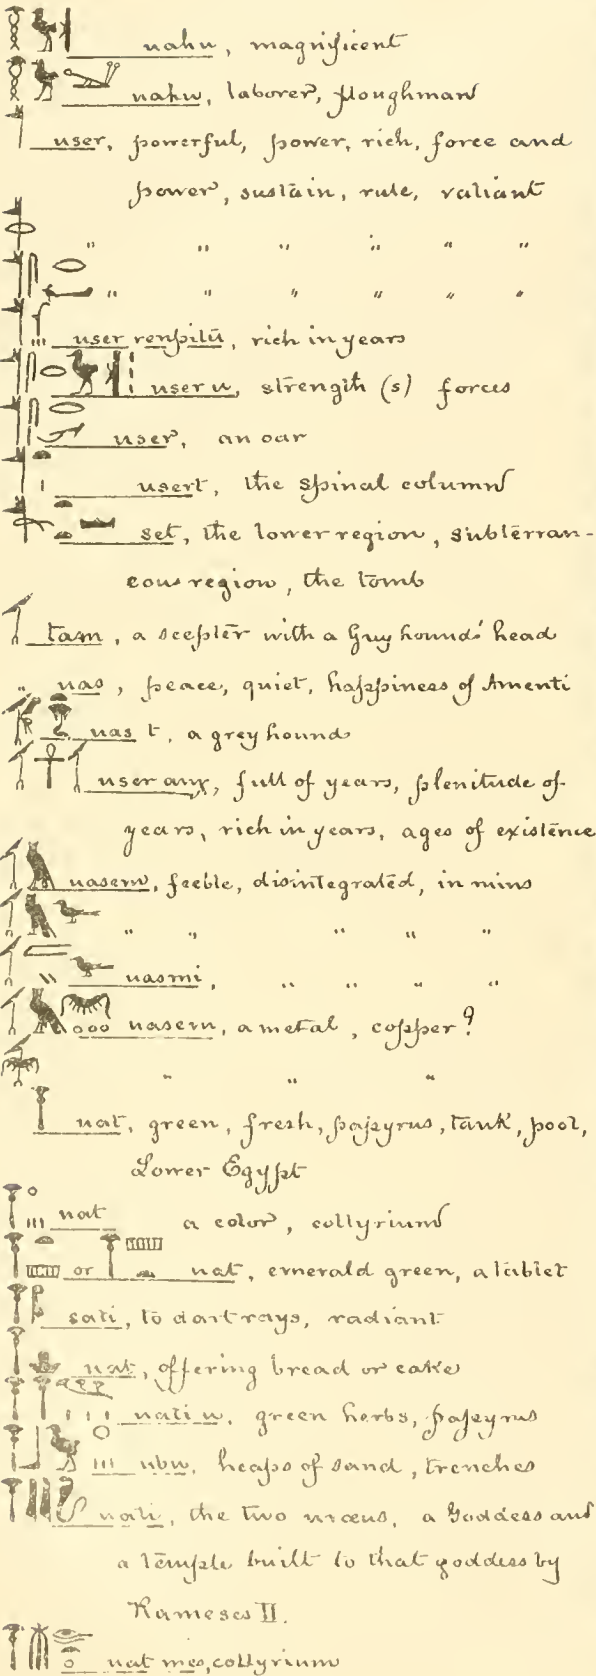 uahu, magnificent
uahu, laborer, ploughman
user, powerful, power, rich, force and
power, sustain, rule, valiant
" " " " " "
" " " " " "
user renpitu, rich in years
user u, strength (s) forces
user, an oar
usert, the spinal column
set, the lower region, subterran-
eous region, the tomb
tam, a scepter with a Greyhounds' head
" uas, peace, quiet, happiness of Amenti
uas t, a greyhound
user anχ, full of years, plenitude of
years, rich in years, ages of existence
uasem, feeble, disintegrated, in ruins
" " " " "
uasmi, " " " "
uasem, a metal, copper?
" " "
uat, green, fresh, papyrus, tank, pool,
Lower Egypt
uat a color, collyrium
or uat, emerald green, a tablet
sati, to dart rays, radiant
uat, offering bread or cake
uati u, green herbs, papyrus
ubu, heaps of sand, trenches
uati, the two uræus, a Goddess and
a Temple built to that goddess by
Rameses II.
uat mes, collyrium